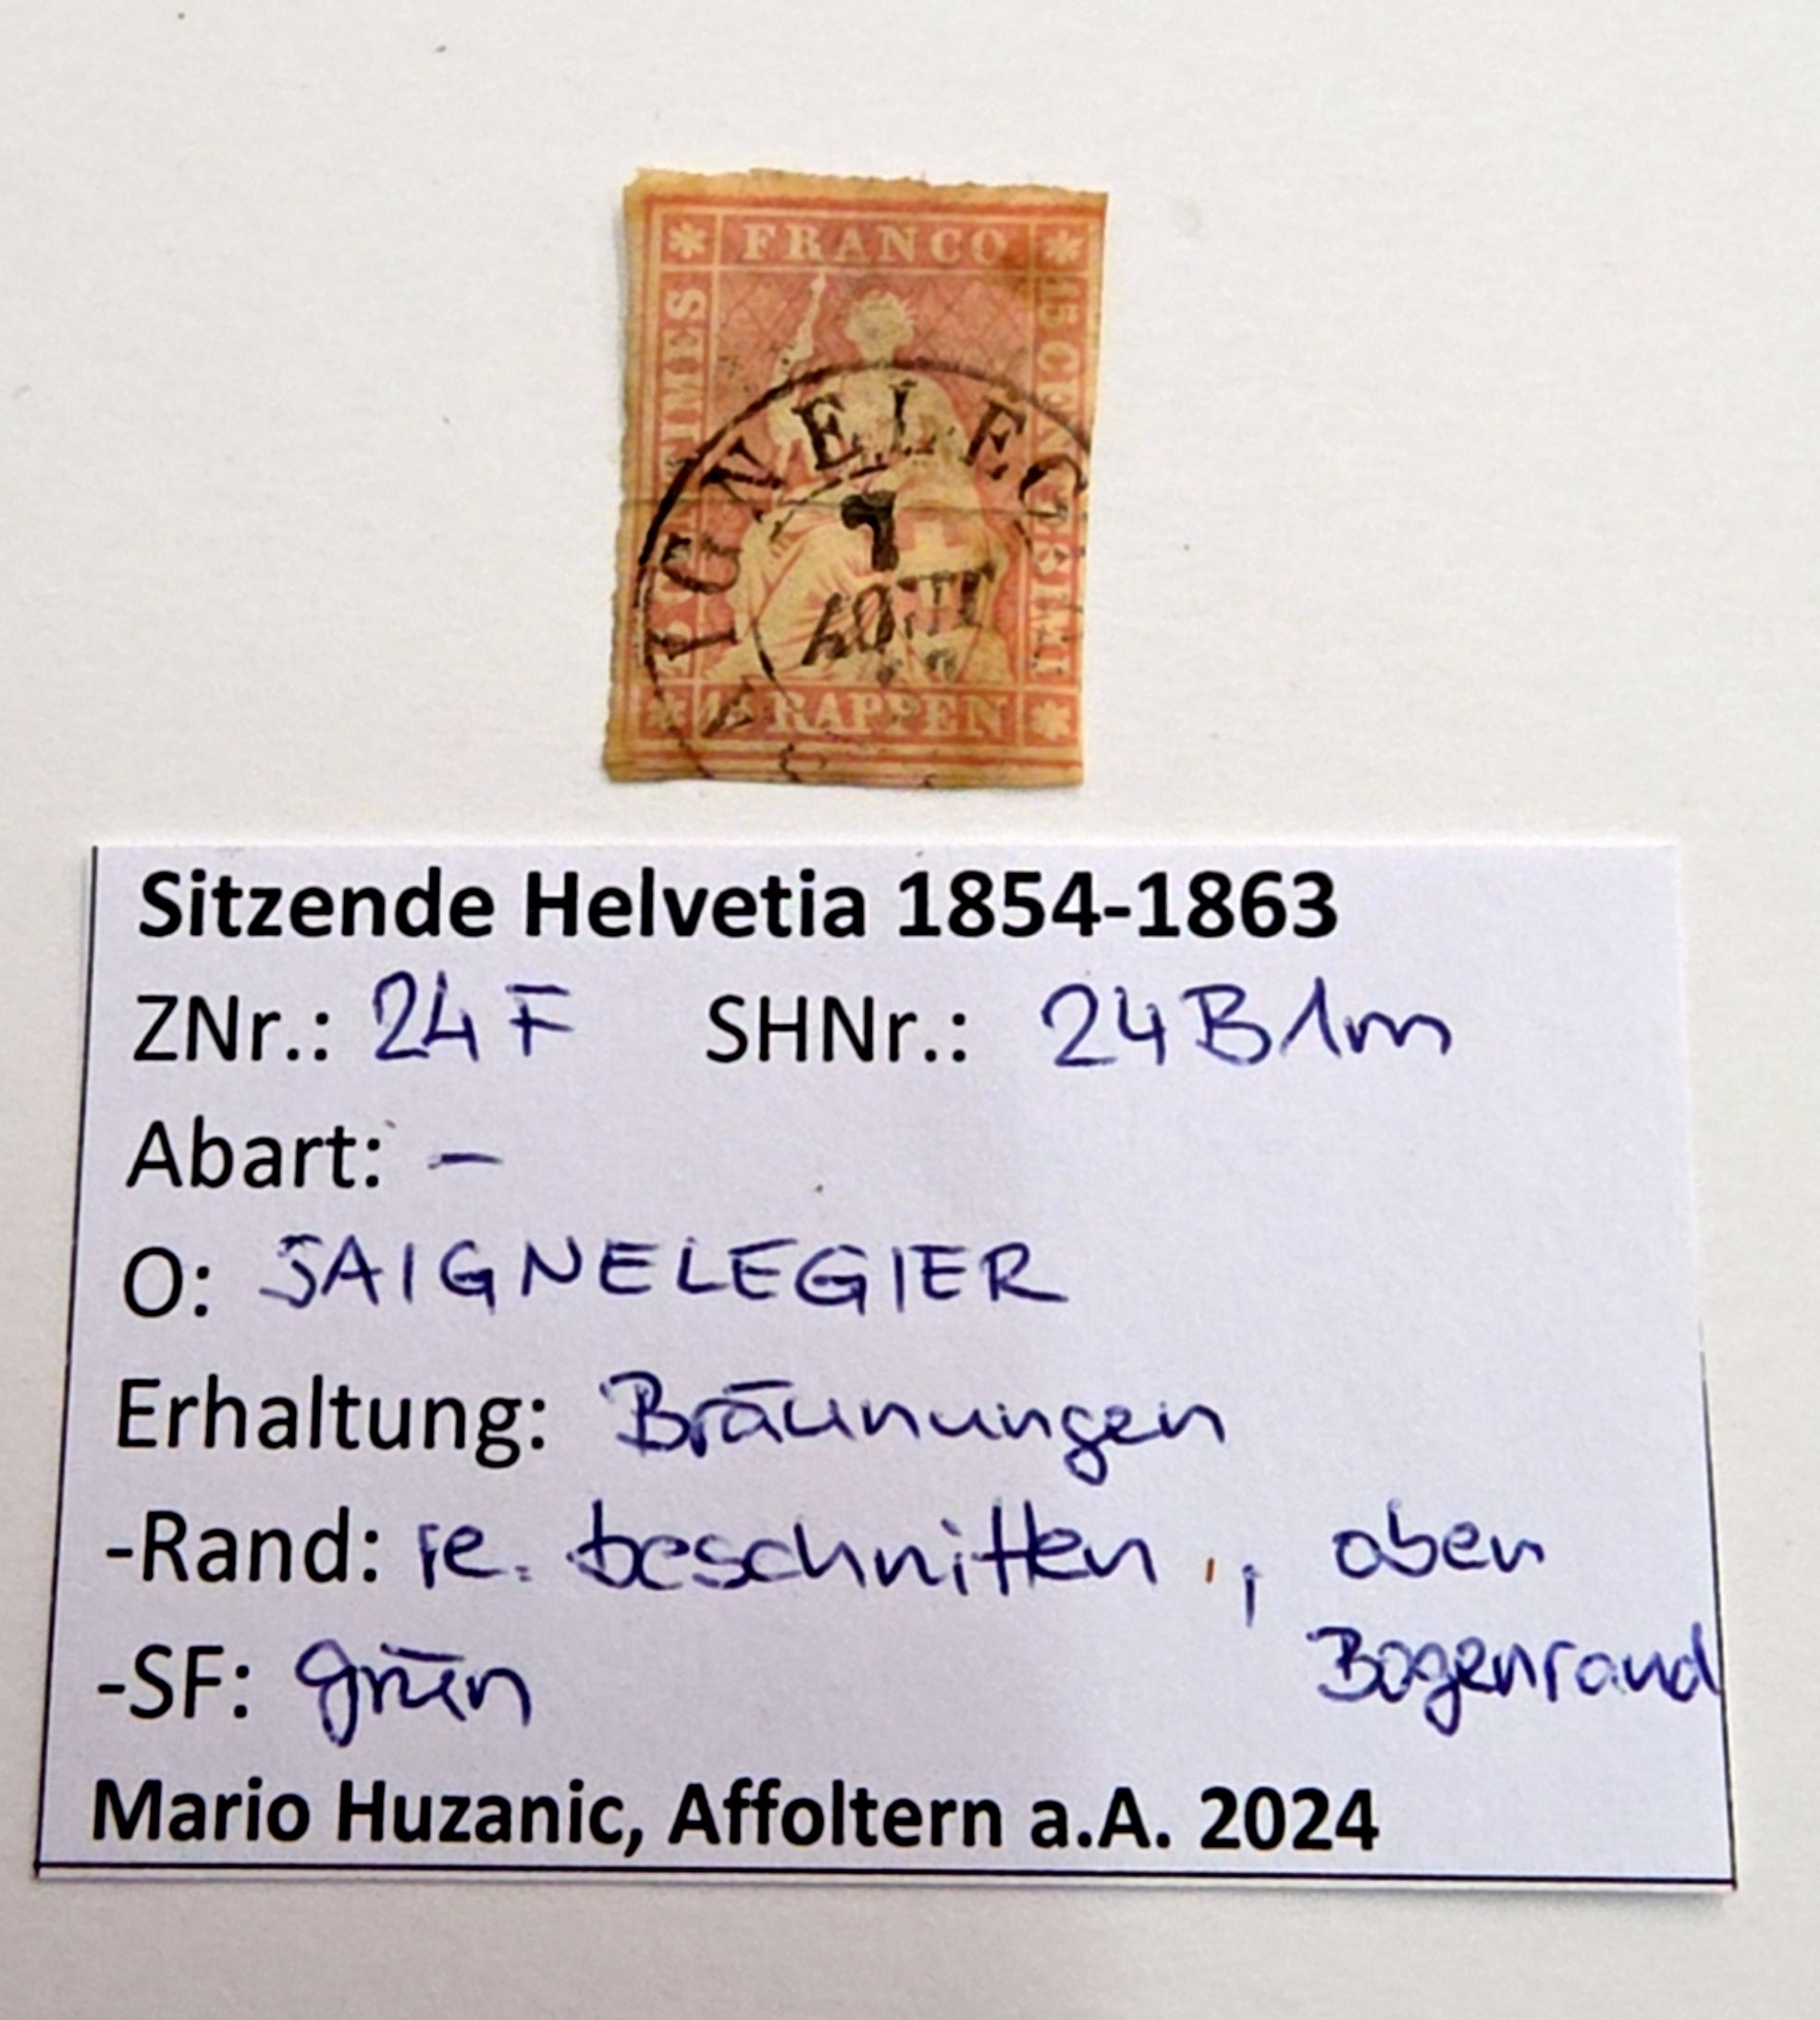 FRANCO
15 RAPPEN
IGNELEG
7
Sitzende Helvetia 1854-1863
ZNr.: 24F SHNr.: 24B1m
Abart: –
O: SAIGNELEGIER
Erhaltung: Bräunungen
-Rand: re. beschnitten, oben
Bogenrand
-SF: grün
Mario Huzanic, Affoltern a.A. 2024